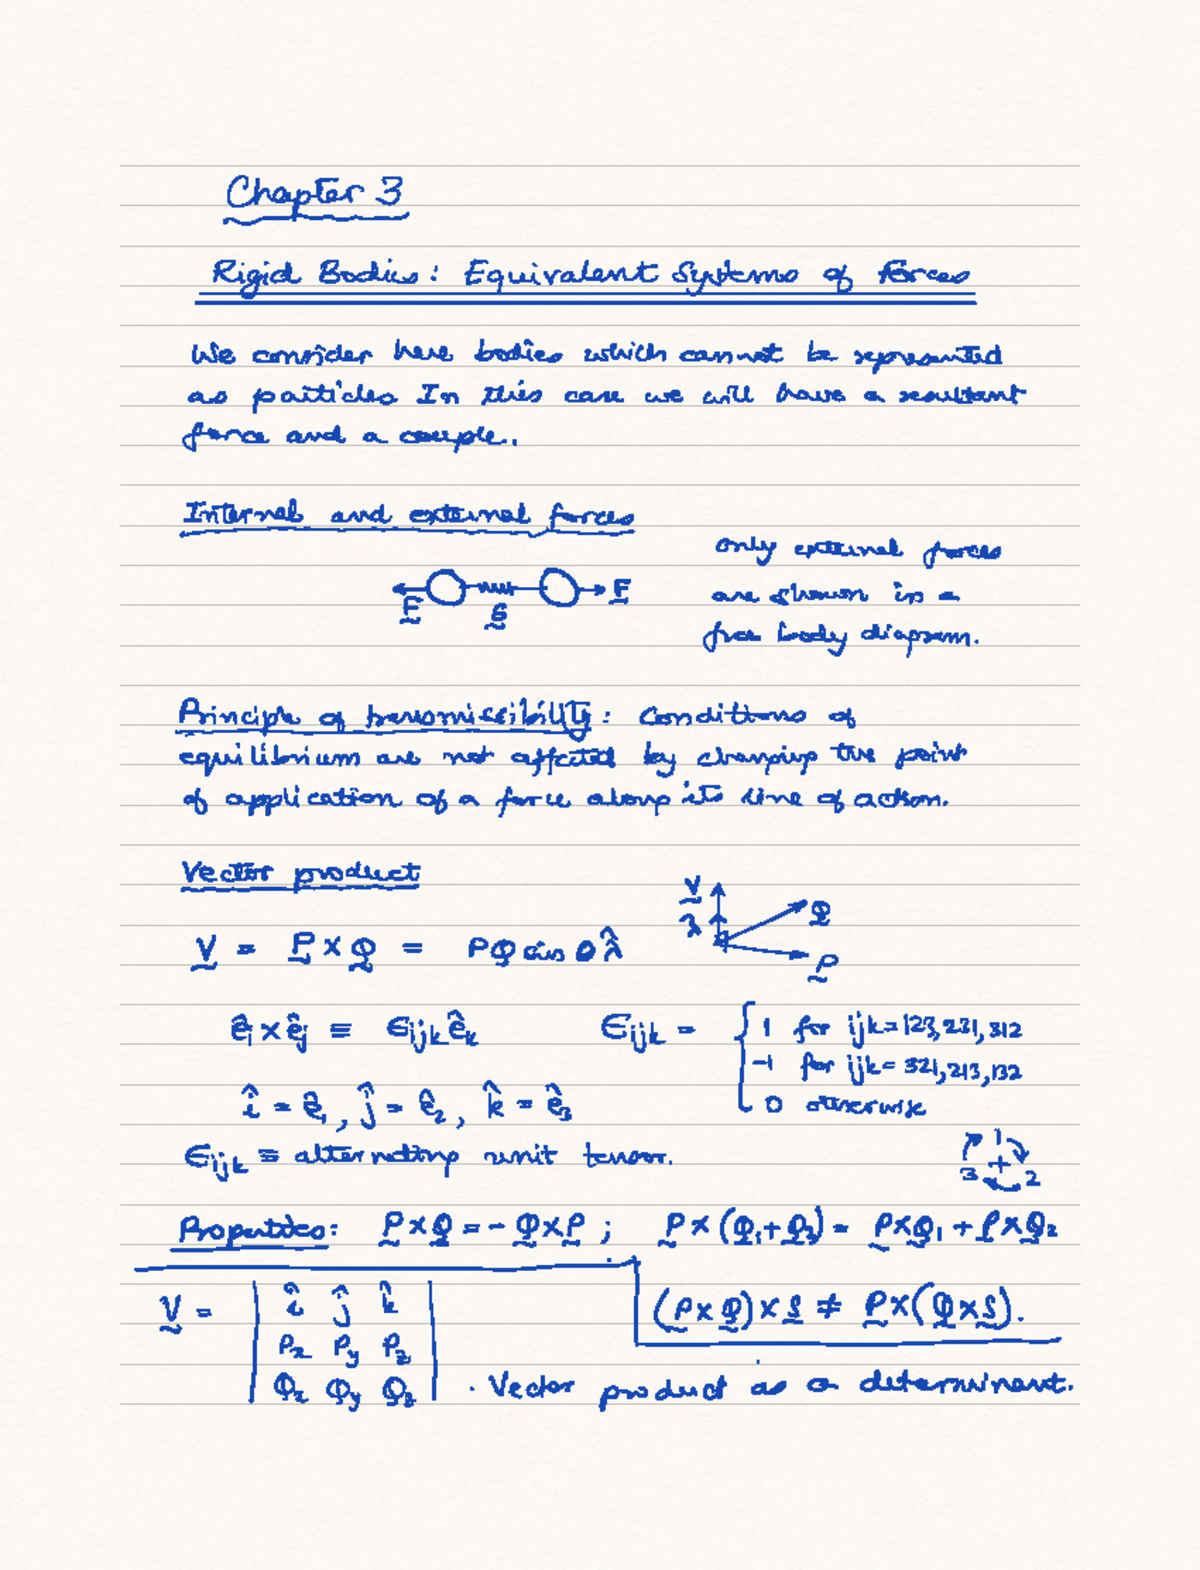 Chapter 3
Rigid Bodies: Equivalent Systems of forces
We consider here bodies which cannot be represented
as particles In this case we will have a resultant
force and a couple.
Internal and external forces
only external forces
are shown in a
free body diagram.
F S F
Principle of transmissibility: Conditions of
equilibrium are not affected by changing the point
of application of a force along its line of action.
Vector product
V λ̂ Q P
V = P × Q = PQ sin θ λ̂
êi × êj ≡ ϵijk êk ϵijk = { 1 for ijk=123,231,312
-1 for ijk= 321,213,132
0 otherwise
î = ê1, ĵ = ê2, k̂ = ê3
ϵijk ≡ alternating unit tensor.
1 2 3 +
Properties: P×Q = - Q×P ; P×(Q1+Q2) = P×Q1 + P×Q2
(P×Q)×S ≠ P×(Q×S).
V = | î ĵ k̂ |
| Px Py Pz |
| Qx Qy Qz | . Vector product as a determinant.